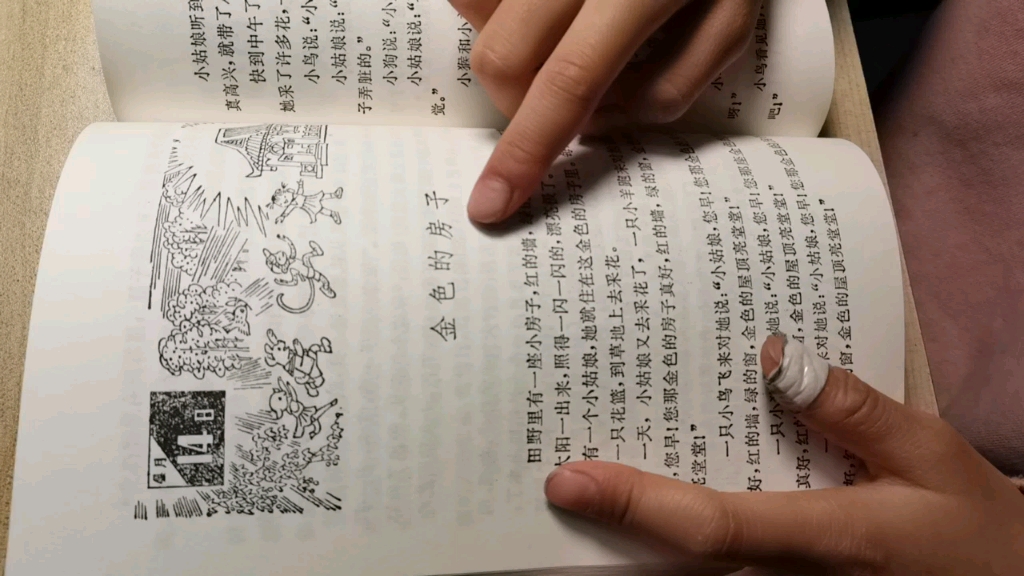 4月
14日
金色的房子
田野里有一座小房子,红的墙,
阳一出来,照得一闪一闪的,漂亮极了。
有一个小姑娘,她就住在这金色的房子里。
一只花篮,到草地上去采花。
一天,小姑娘又去采花了,一只小羊跑来对
,您早!您那金色的房子真好,红的墙,绿的窗,
堂堂!”
一只小鸟飞来对她说:“小姑娘,您早!您那金色
好,红的墙,绿的窗,金色的屋顶亮堂堂!
一只小 她说:“小姑娘,您早!您那金色
真好,红 ,金色的屋顶亮堂堂!”
一 来对她说:“小姑娘,您早!您那金色
好, 窗,金色的屋顶亮堂堂!”
小姑娘听到
真高兴,就带了
快到中午了
她采了许多花。
小鸟说:“小
小姑娘说:“
子弄脏的。”
小狗说:“小
小姑娘说:“
觉。”
小猴和小
呀!”
吧!”